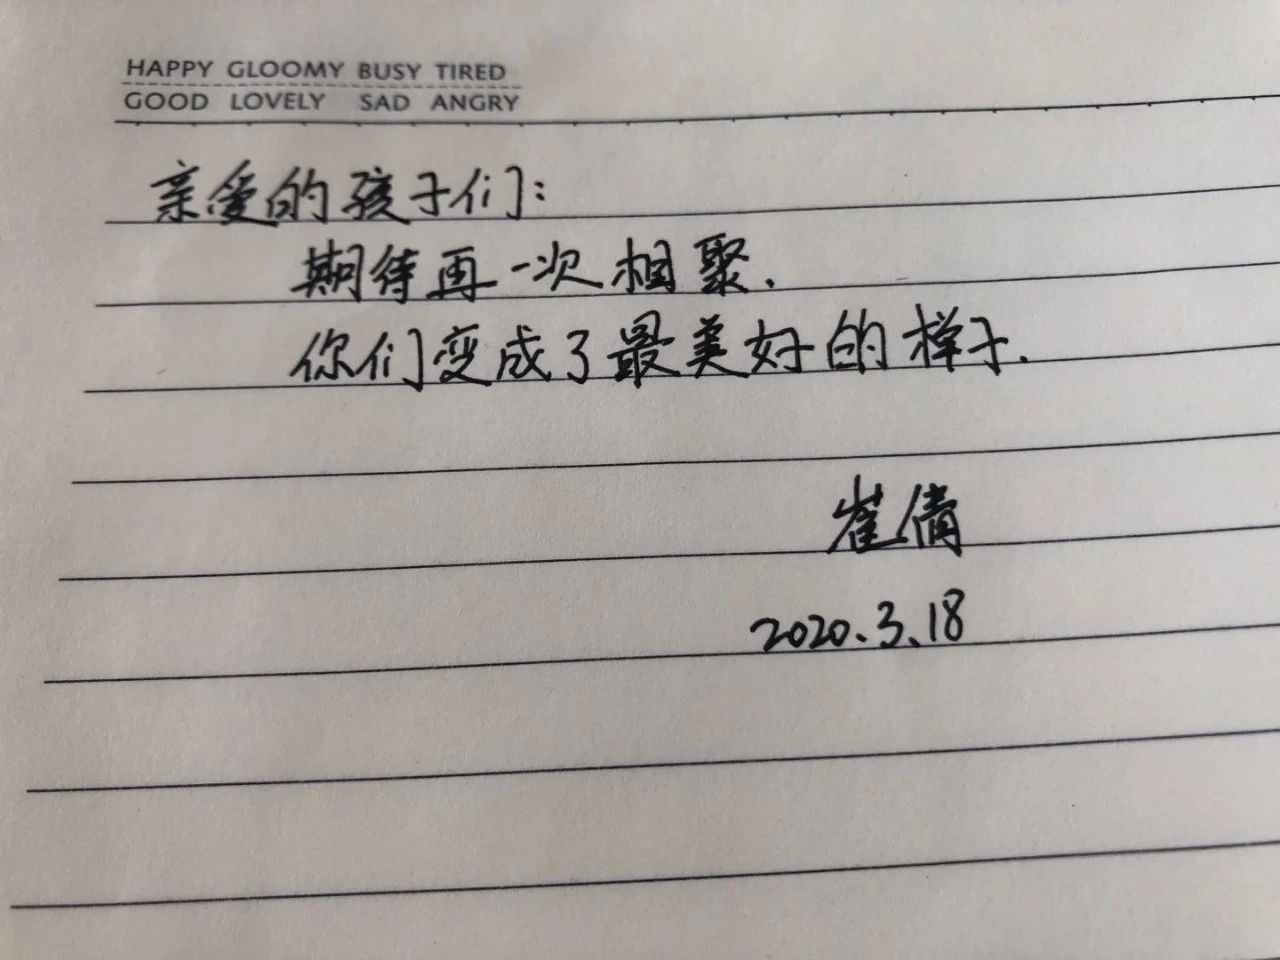 HAPPY GLOOMY BUSY TIRED
GOOD LOVELY SAD ANGRY
亲爱的孩子们:
期待再一次相聚.
你们变成了最美好的样子.
崔倩
2020.3.18